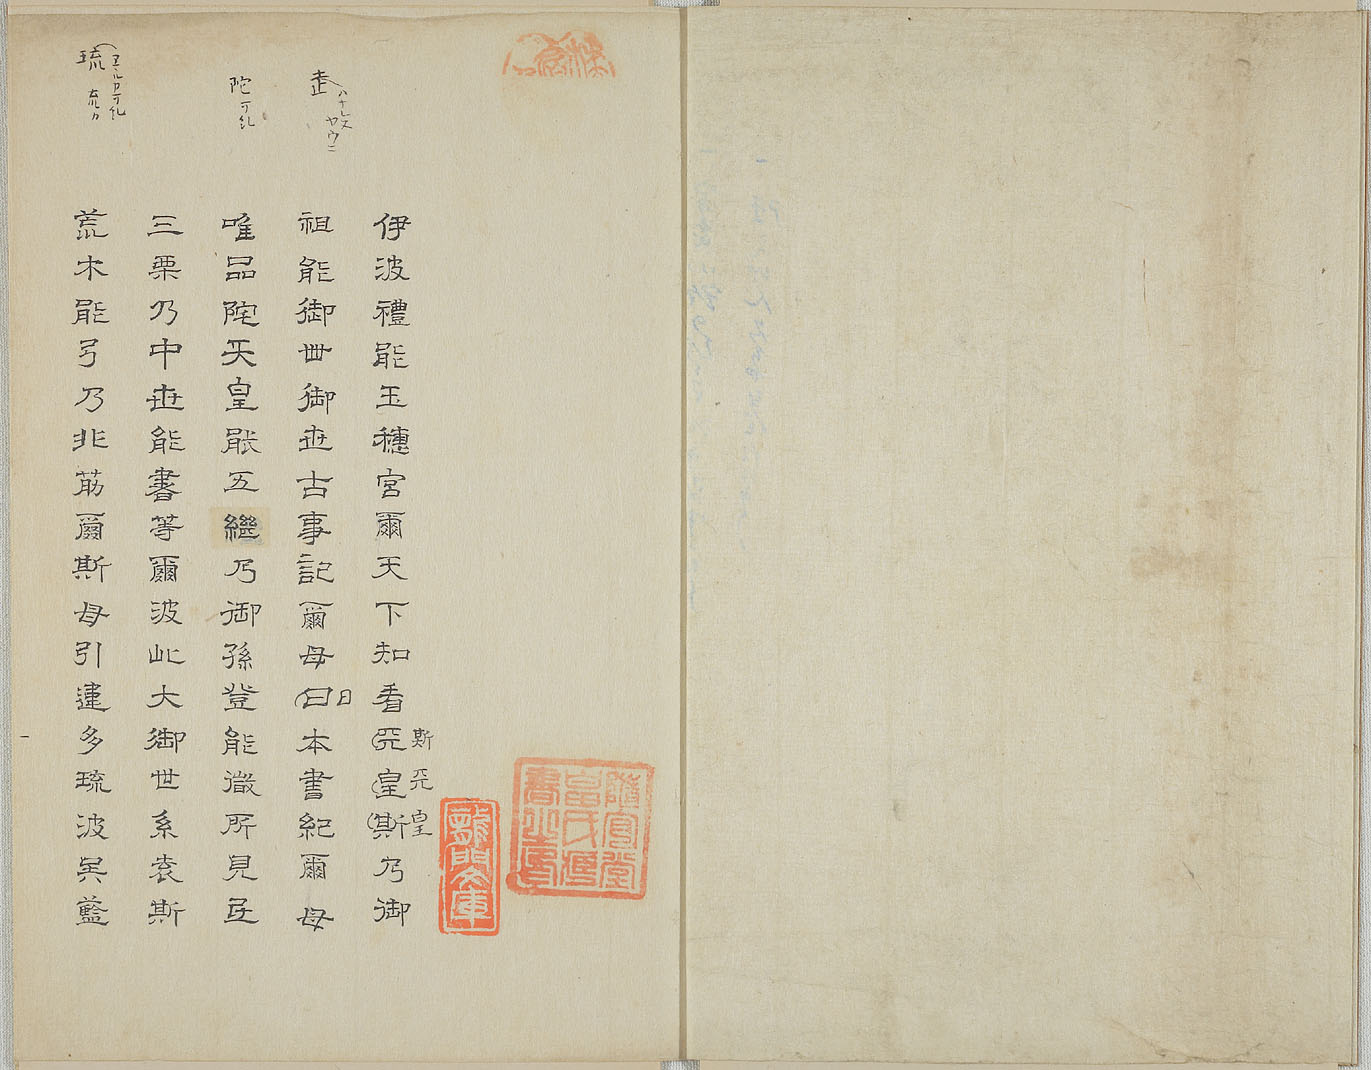 伊波禮能玉穗宮爾天下知看天皇斯乃御
斯天皇
祖能御世御世古事記爾母曰本書紀爾母
日
唯品陀天皇能五繼乃御孫登能微所見
三栗乃中世能書等爾波此大御世系袁斯
荒木能弓乃非筋爾斯母引違多琉波吴藍
走
ハナレヌ
ヤウニ
陀
可糺
琉
流カ
龍門文庫